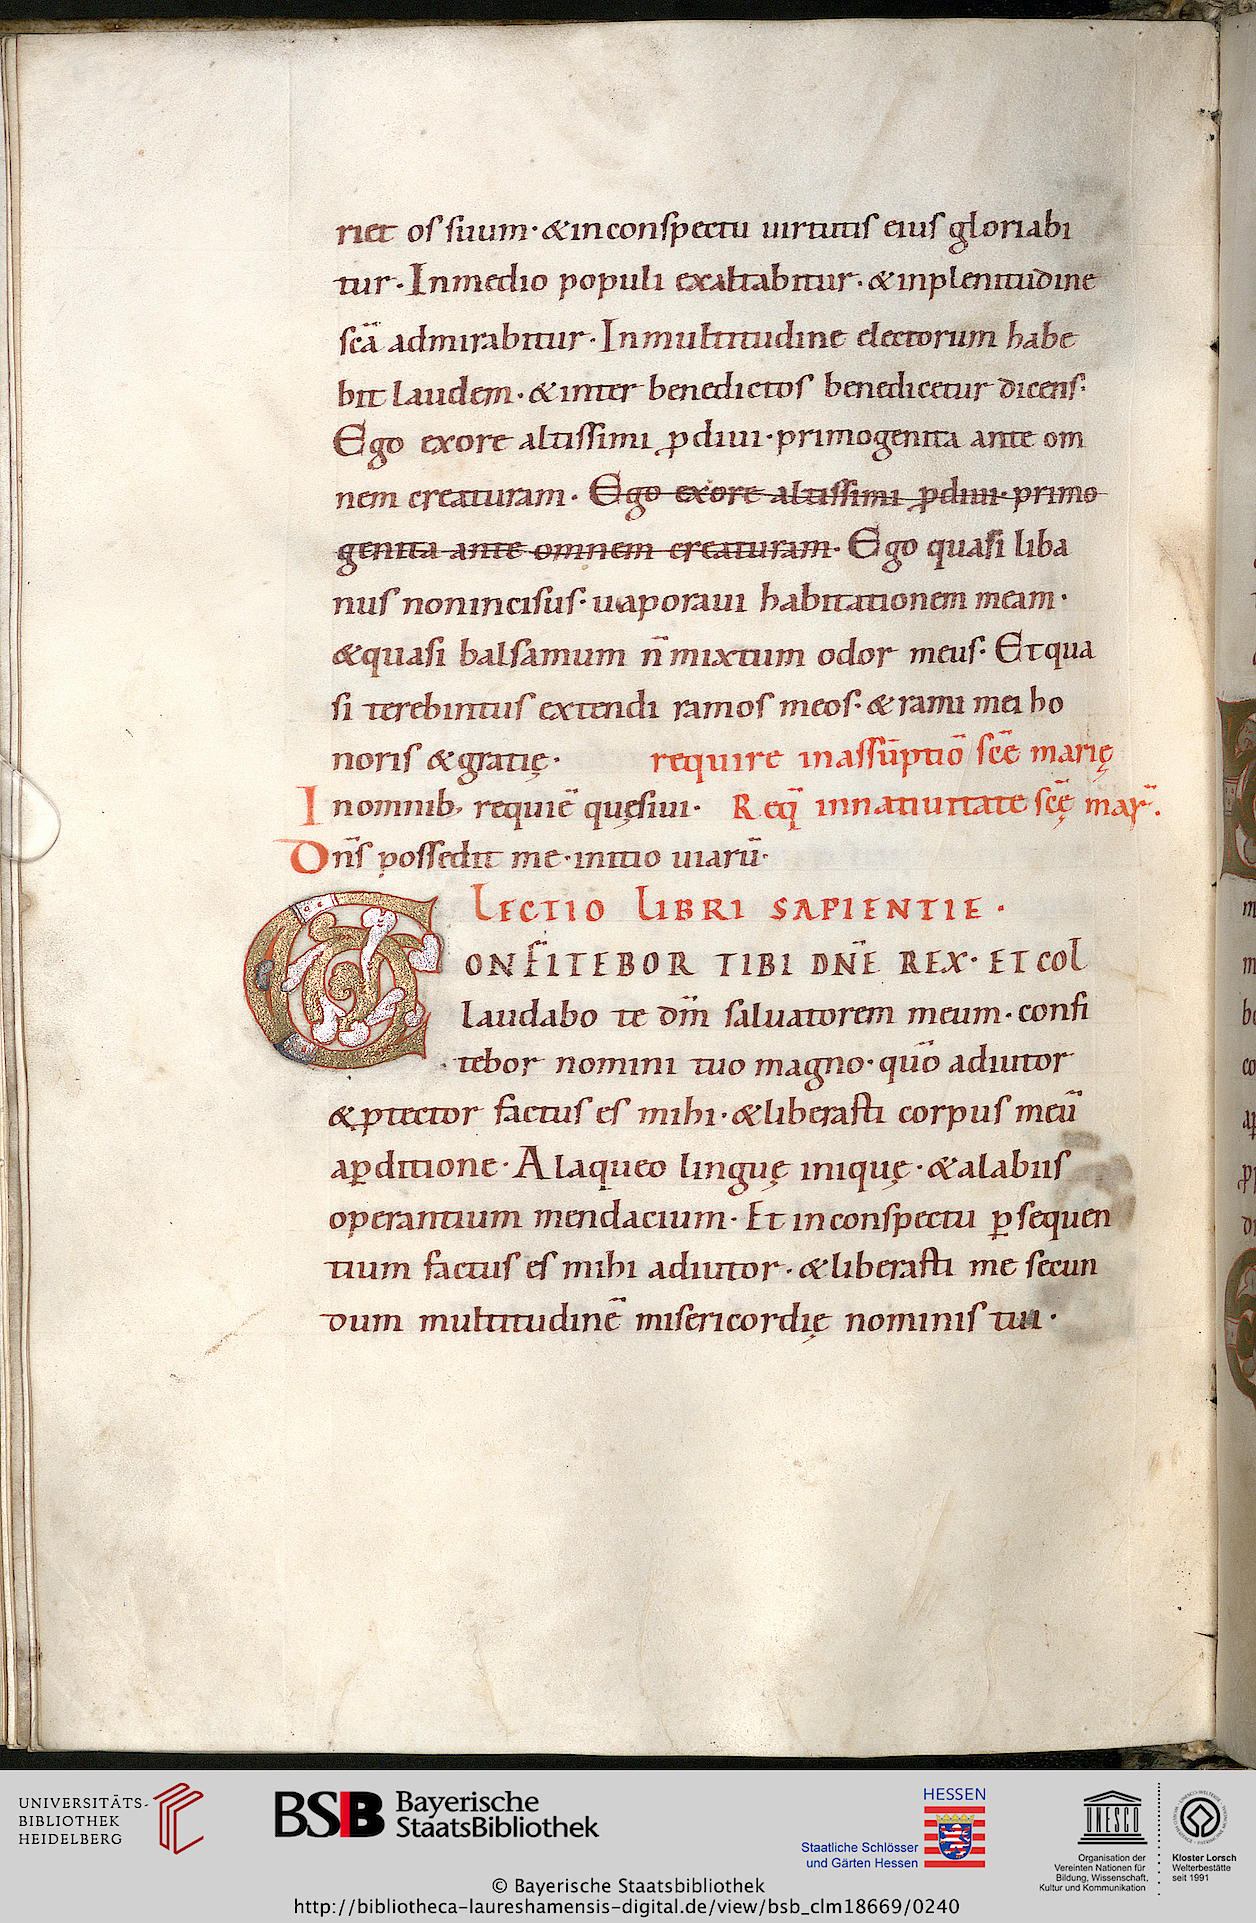 riet os suum· & in conspectu uirtutis eius gloriabi
tur· In medio populi exaltabitur· & in plenitudine
scā admirabitur· In multitudine electorum habe
bit laudem· & inter benedictos benedicetur dicens·
Ego ex ore altissimi ꝓdiui· primogenita ante om
nem creaturam· Ego ex ore altissimi ꝓdiui· primo
genita ante omnem creaturam· Ego quasi liba
nus non incisus· uaporaui habitationem meam·
& quasi balsamum n̄ mixtum odor meus· Et qua
si terebintus extendi ramos meos· & rami mei ho
noris & gratię· require in assūptiō scē marię
In omnib; requiē quęsiui· Req̄ in natiuitate scę mar̄.
Dn̄s possedit me· initio uiarū·
LECTIO LIBRI SAPIENTIE·
CONFITEBOR TIBI DNĒ REX· ET COL
laudabo te dm̄ saluatorem meum· confi
tebor nomini tuo magno· qūo adiutor
& ꝓtector factus es mihi· & liberasti corpus meū
a ꝑditione· A laqueo linguę iniquę· & a labiis
operantium mendacium· Et in conspectu ꝑsequen
tium factus es mihi adiutor· & liberasti me secun
dum multitudinē misericordię nominis tui·
UNIVERSITÄTS-
BIBLIOTHEK
HEIDELBERG
BSB Bayerische
StaatsBibliothek
HESSEN
Staatliche Schlösser
und Gärten Hessen
UNESCO
Organisation der
Vereinten Nationen für
Bildung, Wissenschaft,
Kultur und Kommunikation
Kloster Lorsch
Welterbestätte
seit 1991
© Bayerische Staatsbibliothek
http://bibliotheca-laureshamensis-digital.de/view/bsb_clm18669/0240